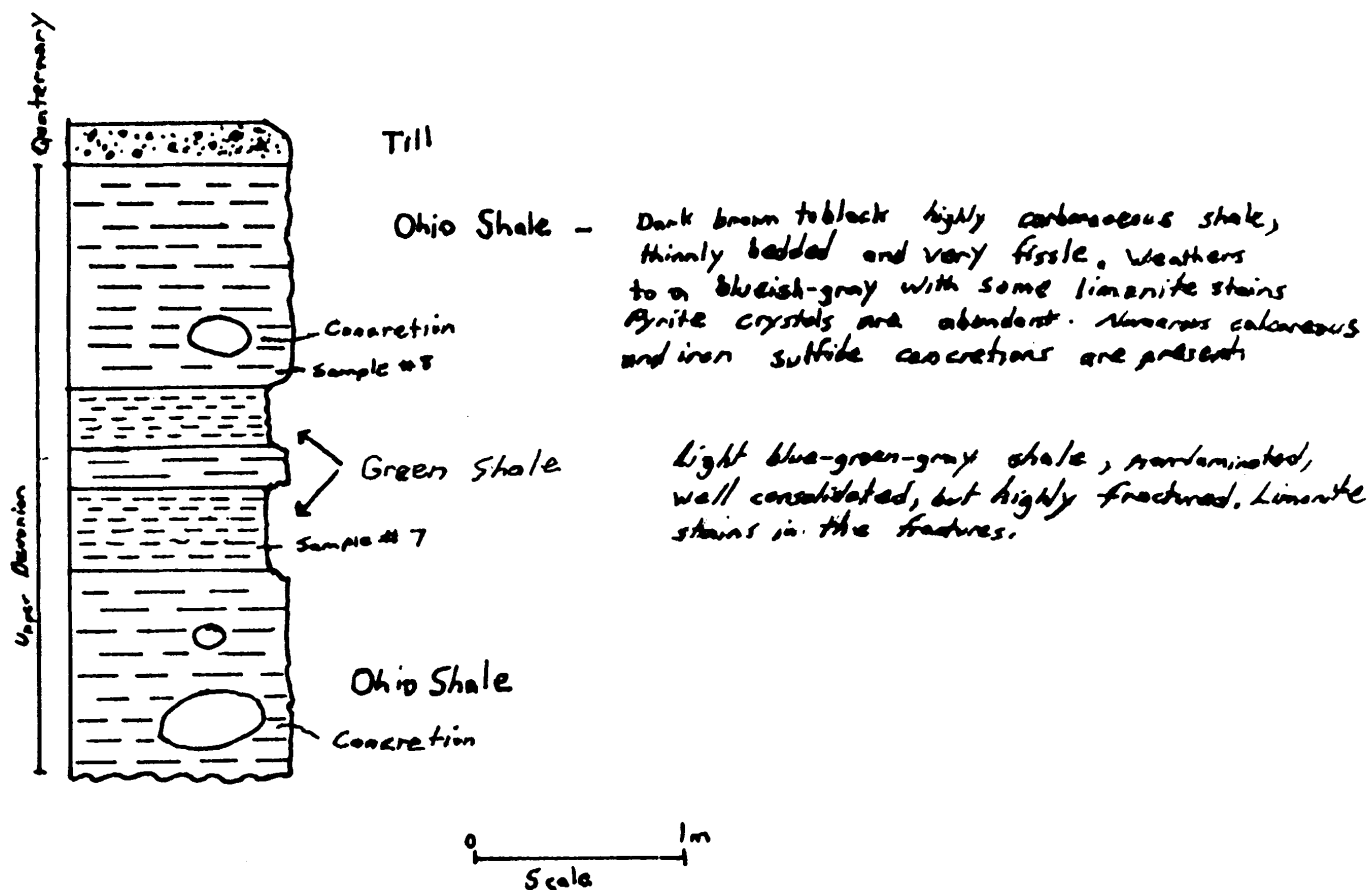 Quaternary
Till
Ohio Shale - Dark brown to black highly carbonaceous shale,
thinnly bedded and very fissle. Weathers
to a blueish-gray with some limonite stains
Pyrite crystals are abundant. Numerous calcareous
and iron sulfide concretions are present
Concretion
Sample #8
Green Shale
Light blue-green-gray shale, nonlaminated,
well consolidated, but highly fractured. Limonite
stains in the fractures.
Sample #7
Upper Devonian
Ohio Shale
Concretion
0 1m
Scale